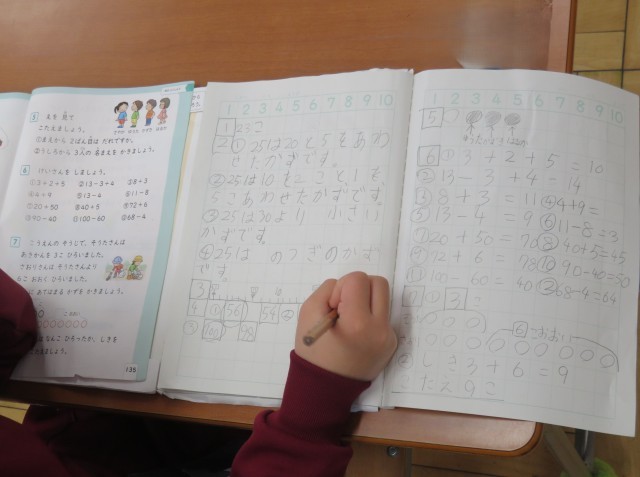 5 えを 見て
こたえましょう。
①まえから 2ばん目は だれですか。
②うしろから 3人の 名まえを かきましょう。
6 けいさんを しましょう。
①3+2+5 ②13-3+4 ③8+3
④4+9 ⑤13-4 ⑥11-8
⑦20+50 ⑧40+5 ⑨72+6
⑩90-40 ⑪100-60 ⑫68-4
7 こうえんの そうじで、そうたさんは
あきかんを 3こ ひろいました。
さおりさんは そうたさんより
こ おおく ひろいました。
あてはまる かずを かきましょう。
こ おおい
ひろったか、しきを
きましょう。
135
1 2 3 4 5 6 7 8 9 10
1 23こ
2 ①25は20と5をあわ
せたかずです。
②25は10を2こと1を5
こあわせたかずです。
③25は30より 小さい
かずです。
④25は のつぎのかず
です。
3
4 ① 56 54
1 2 3 4 5 6 7 8 9 10
5
6 ①3+2+5=10
②13-3+4=14
8+3 ④4+9=
⑤13-4=9 ⑥11-8=3
⑦20+50=70 ⑧40+5=45
⑨72+6=78 ⑩90-40=50
100-60=40 68-4=64
7 ① 3
6こおおい
しき3+6=9
こたえ9こ